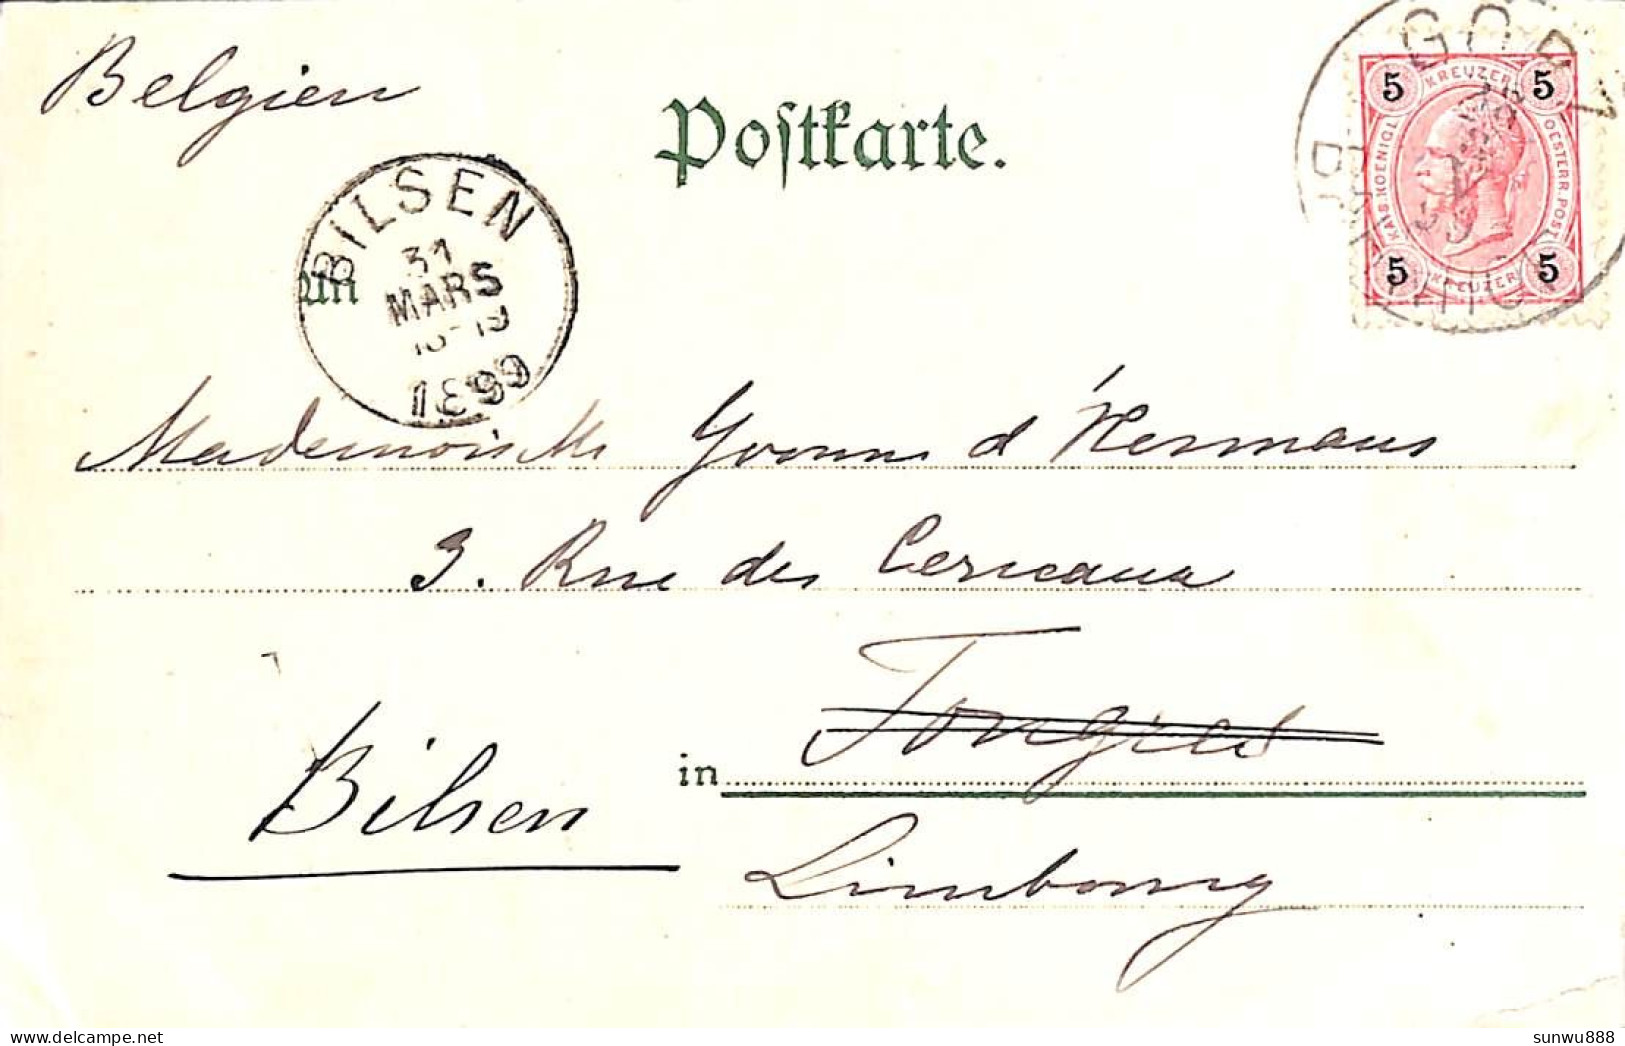 Belgien
Postkarte.
BILSEN
31
MARS
1899
An
5 KREUZER 5
KAIS. KOENIGL. OESTERR. POST
5 KREUZER 5
GÖRZ
Mademoiselle Yvonne d'Hermans
3. Rue des
in Tongres
Bilsen
Limbourg
sunwu888